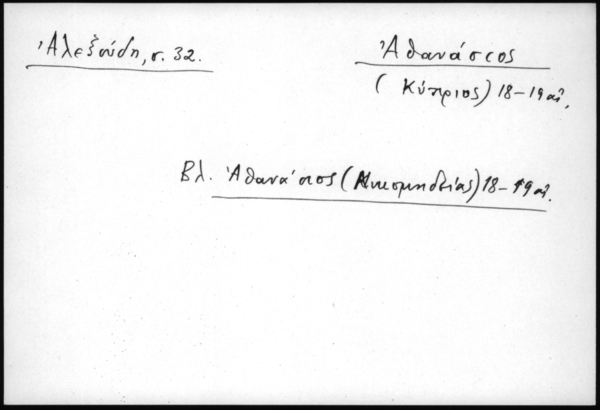 Ἀλεξούδη, σ. 32.
Ἀθανάσιος
(Κύπριος) 18-19 αἰ.
Βλ. Ἀθανάσιος (Νικομηδείας) 18-19 αἰ.